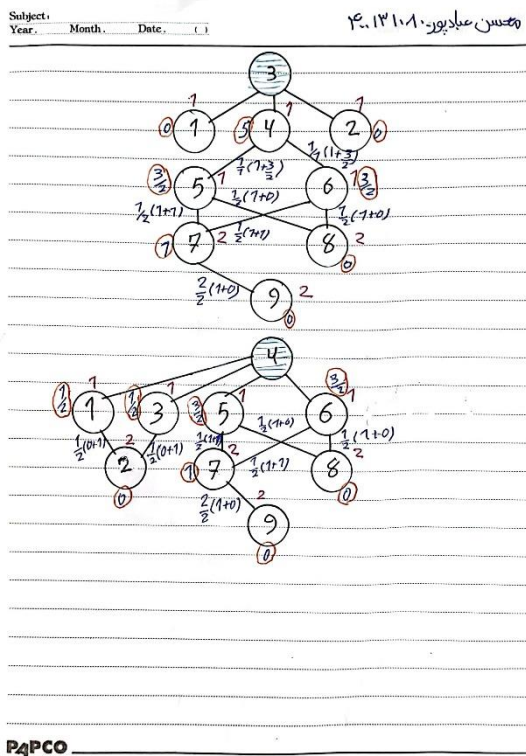 Subject:
Year. Month. Date. ( )
محسن عبادپور - ۴۰۰۱۳۱۰۸۰
3
1 1 1
0 1 5 4 2 0
1/1(1+3/2) 1/1(1+3/2)
3/2 5 1 6 1 3/2
1/2(1+1) 1/2(1+0) 1/2(1+1) 1/2(1+0)
1 7 2 8 2
0
2/2(1+0) 9 2
0
4
1/2 1 1/2 1 3/2 1 3/2 1
1 3 5 6
1/2(0+1) 1/2(0+1) 1/2(1+1) 1/2(1+0) 1/2(1+0)
2 2 1 7 2 1/2(1+1) 8 2
0 0
2/2(1+0) 2
9
0
PAPCO